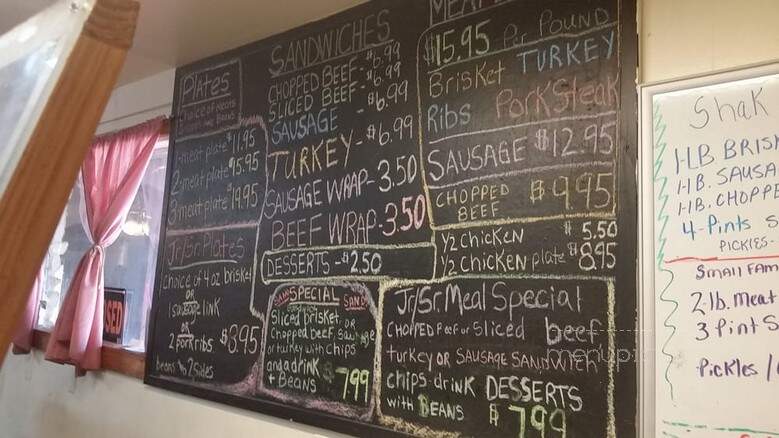 PLATES
Choice of meats
1-meat plate $11.95
2-meat plate $15.95
3-meat plate $19.95
Jr/Sr. Plates
choice of 4oz brisket
OR
1 sausage link
OR
2 porkribs. $8.95
beans 2 sides
SANDWICHES
CHOPPED BEEF - $6.99
SLICED BEEF - $6.99
SAUSAGE - $6.99
TURKEY - $6.99
SAUSAGE WRAP - 3.50
BEEF WRAP - 3.50
DESSERTS - $2.50
SPECIAL SAND
Sliced brisket, OR
Chopped beef,
or turkey with chips
and a drink
+ BEANS $7.99
$15.95 Per Pound
Brisket TURKEY
Ribs Pork Steak
SAUSAGE $12.95
CHOPPED
BEEF $9.95
1/2 CHICKEN $5.50
1/2 CHICKEN plate $8.95
Jr/Sr. Meal Special
CHOPPED Beef or Sliced beef,
turkey OR SAUSAGE SANDWICH
chips-drink DESSERTS
with BEANS $7.99
Shak
1-LB BRISK
1-lB. SAUSA
1-lB. CHOPP
4-Pints S
PICKLES
SMALL FAM
2-lb. Meat
3 Pint S
Pickles /